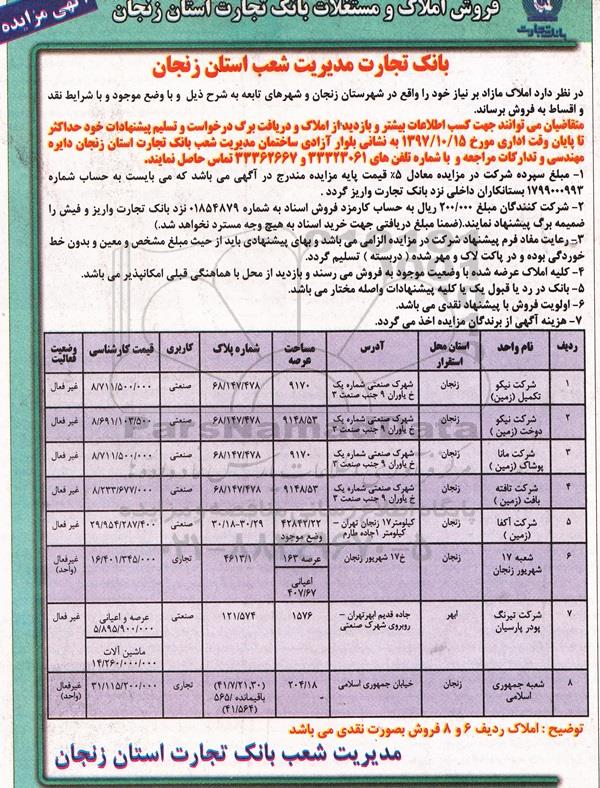 آگهی مزایده
فروش املاک و مستغلات بانک تجارت استان زنجان
بانک تجارت
بانک تجارت مدیریت شعب استان زنجان
در نظر دارد املاک مازاد بر نیاز خود را واقع در شهرستان زنجان و شهرهای تابعه به شرح ذیل و با وضع موجود و با شرایط نقد
و اقساط به فروش برساند.
متقاضیان می توانند جهت کسب اطلاعات بیشتر و بازدید از املاک و دریافت برگ درخواست و تسلیم پیشنهادات خود حداکثر
تا پایان وقت اداری مورخ ۱۳۹۷/۱۰/۱۵ به نشانی بلوار آزادی ساختمان مدیریت شعب بانک تجارت استان زنجان دایره
مهندسی و تدارکات مراجعه و با شماره تلفن های ۳۳۳۲۳۰۶۱ و ۳۳۳۶۲۶۶۷ تماس حاصل نمایند.
۱- مبلغ سپرده شرکت در مزایده معادل ۵٪ قیمت پایه مزایده مندرج در آگهی می باشد که می بایست به حساب شماره
۱۷۹۹۰۰۰۹۹۳ بستانکاران داخلی نزد بانک تجارت واریز گردد.
۲- شرکت کنندگان مبلغ ۲۰۰/۰۰۰ ریال به حساب کارمزد فروش اسناد به شماره ۰۱۸۵۴۸۷۹ نزد بانک تجارت واریز و فیش را
ضمیمه برگ پیشنهاد نمایند.(ضمنا مبلغ دریافتی جهت خرید اسناد به هیچ وجه مسترد نخواهد شد.)
۳- رعایت مفاد فرم پیشنهاد شرکت در مزایده الزامی می باشد و بهای پیشنهادی باید از حیث مبلغ مشخص و معین و بدون خط
خوردگی بوده و در پاکت لاک و مهر شده ( دربسته ) تسلیم گردد.
۴- کلیه املاک عرضه شده با وضعیت موجود به فروش می رسند و بازدید از محل با هماهنگی قبلی امکانپذیر می باشد.
۵- بانک در رد یا قبول یک یا کلیه پیشنهادات واصله مختار می باشد.
۶- اولویت فروش با پیشنهاد نقدی می باشد.
۷- هزینه آگهی از برندگان مزایده اخذ می گردد.
ردیف نام واحد استان محل استقرار آدرس مساحت عرصه شماره پلاک کاربری قیمت کارشناسی وضعیت فعالیت
۱ شرکت نیکو تکمیل (زمین) زنجان شهرک صنعتی شماره یک خ یاوران ۹ جنب صنعت ۳ ۹۱۷۰ ۶۸/۱۴۷/۴۷۸ صنعتی ۸/۷۱۱/۵۰۰/۰۰۰ غیر فعال
۲ شرکت نیکو دوخت (زمین) زنجان شهرک صنعتی شماره یک خ یاوران ۹ جنب صنعت ۳ ۹۱۴۸/۵۳ ۶۸/۱۴۷/۴۷۸ صنعتی ۸/۶۹۱/۱۰۳/۵۰۰ غیر فعال
۳ شرکت مانا پوشاک (زمین) زنجان شهرک صنعتی شماره یک خ یاوران ۹ جنب صنعت ۳ ۹۱۷۰ ۶۸/۱۴۷/۴۷۸ صنعتی ۸/۷۱۱/۵۰۰/۰۰۰ غیر فعال
۴ شرکت تافته بافت (زمین) زنجان شهرک صنعتی شماره یک خ یاوران ۹ جنب صنعت ۳ ۹۱۴۸/۵۳ ۶۸/۱۴۷/۴۷۸ صنعتی ۸/۲۳۳/۶۷۷/۰۰۰ غیر فعال
۵ شرکت آکفا (زمین) زنجان کیلومتر۱۷ زنجان تهران – کیلومتر ۱جاده طارم ۴۲۸۴۲/۲۲ وضع موجود ۳۰/۱۸-۳۰/۲۹ صنعتی ۲۹/۹۵۴/۲۸۷/۴۰۰ غیر فعال
۶ شعبه ۱۷ شهریور زنجان زنجان خ۱۷ شهریور زنجان عرصه ۱۶۳ اعیانی ۴۰۷/۶۷ ۴۶۱۳/۱ تجاری ۱۶/۴۰۱/۳۴۵/۰۰۰ غیر فعال (واحد)
۷ شرکت تیرنگ پودر پارسیان ابهر جاده قدیم ابهرتهران – روبروی شهرک صنعتی ۱۵۷۶ ۱۲۱/۵۷۴ صنعتی عرصه و اعیانی ۵/۸۹۵/۹۰۰/۰۰۰ ماشین آلات ۱۴/۲۶۰/۰۰۰/۰۰۰ غیر فعال
۸ شعبه جمهوری اسلامی زنجان خیابان جمهوری اسلامی ۲۰۴/۱۸ (۴۱/۷/۲۱,۳۰) باقیمانده /۵۶۵ (۴۱/۵۶۴) تجاری ۳۱/۱۱۵/۲۰۰/۰۰۰ غیرفعال (واحد)
توضیح : املاک ردیف ۶ و ۸ فروش بصورت نقدی می باشد
مدیریت شعب بانک تجارت استان زنجان